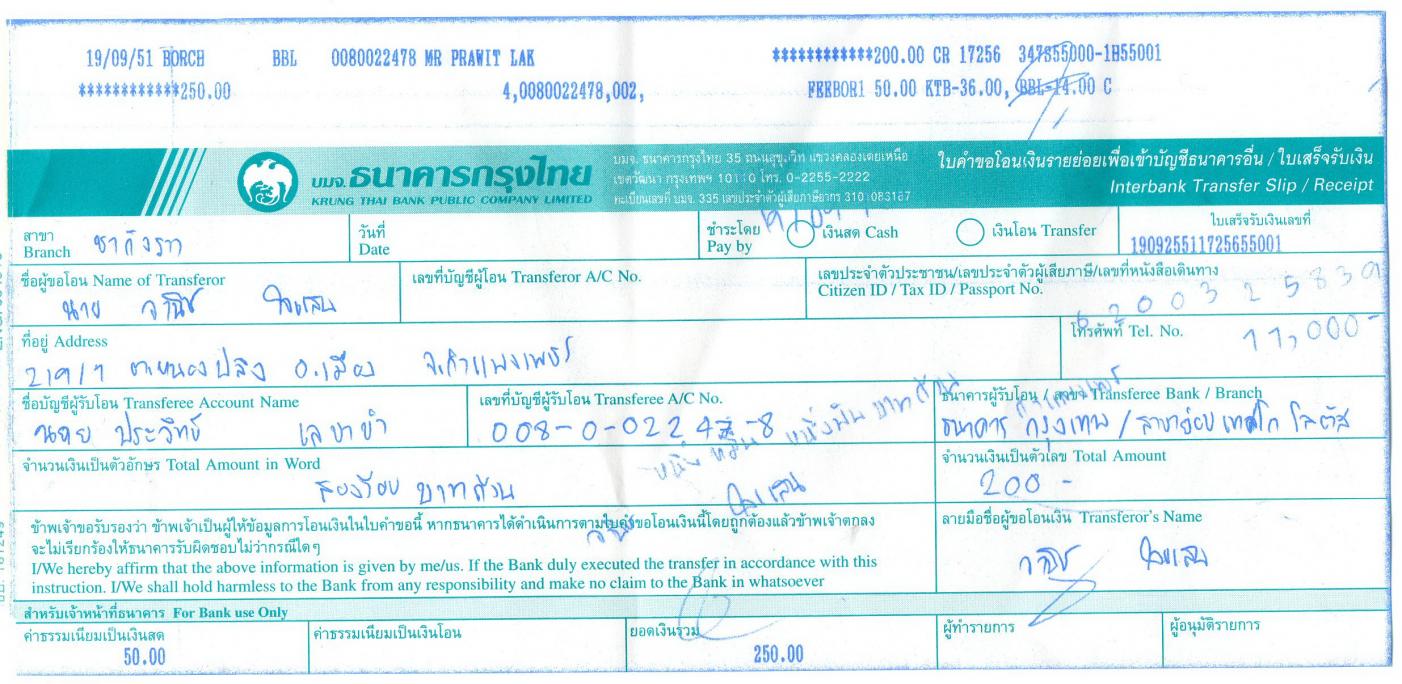 19/09/51 BORCH BBL 0080022478 MR PRAWIT LAK ************200.00 CR 17256 347855000-1H55001
************250.00 4,0080022478,002, FEEBOR1 50.00 KTB-36.00, BBL-14.00 C
บมจ.ธนาคารกรุงไทย
KRUNG THAI BANK PUBLIC COMPANY LIMITED
บมจ. ธนาคารกรุงไทย 35 ถนนสุขุมวิท แขวงคลองเตยเหนือ
เขตวัฒนา กรุงเทพฯ 10110 โทร. 0-2255-2222
ทะเบียนเลขที่ บมจ. 335 เลขประจำตัวผู้เสียภาษีอากร 3101083187
ใบคำขอโอนเงินรายย่อยเพื่อเข้าบัญชีธนาคารอื่น / ใบเสร็จรับเงิน
Interbank Transfer Slip / Receipt
สาขา
Branch ชากังราว
วันที่
Date
ชำระโดย
Pay by
เงินสด Cash
เงินโอน Transfer
ใบเสร็จรับเงินเลขที่
190925511725655001
ชื่อผู้ขอโอน Name of Transferor
นาย
เลขที่บัญชีผู้โอน Transferor A/C No.
เลขประจำตัวประชาชน/เลขประจำตัวผู้เสียภาษี/เลขที่หนังสือเดินทาง
Citizen ID / Tax ID / Passport No.
6200325839
ที่อยู่ Address
219/1 ต.หนองปลิง อ.เมือง จ.กำแพงเพชร
โทรศัพท์ Tel. No.
11,000-
ชื่อบัญชีผู้รับโอน Transferee Account Name
นาย ประวิทย์
เลขที่บัญชีผู้รับโอน Transferee A/C No.
008-0-02247-8
หนึ่งหมื่นหนึ่งพันบาทถ้วน
ธนาคารผู้รับโอน / สาขา Transferee Bank / Branch
กำแพงเพชร
ธนาคาร กรุงเทพ / สาขาย่อย เทสโก โลตัส
จำนวนเงินเป็นตัวอักษร Total Amount in Word
สองร้อย บาทถ้วน
จำนวนเงินเป็นตัวเลข Total Amount
200 -
ข้าพเจ้าขอรับรองว่า ข้าพเจ้าเป็นผู้ให้ข้อมูลการโอนเงินในใบคำขอนี้ หากธนาคารได้ดำเนินการตามใบคำขอโอนเงินนี้โดยถูกต้องแล้วข้าพเจ้าตกลง
จะไม่เรียกร้องให้ธนาคารรับผิดชอบไม่ว่ากรณีใดๆ
I/We hereby affirm that the above information is given by me/us. If the Bank duly executed the transfer in accordance with this
instruction. I/We shall hold harmless to the Bank from any responsibility and make no claim to the Bank in whatsoever
ลายมือชื่อผู้ขอโอนเงิน Transferor's Name
สำหรับเจ้าหน้าที่ธนาคาร For Bank use Only
ค่าธรรมเนียมเป็นเงินสด
50.00
ค่าธรรมเนียมเป็นเงินโอน
ยอดเงินรวม
250.00
ผู้ทำรายการ
ผู้อนุมัติรายการ